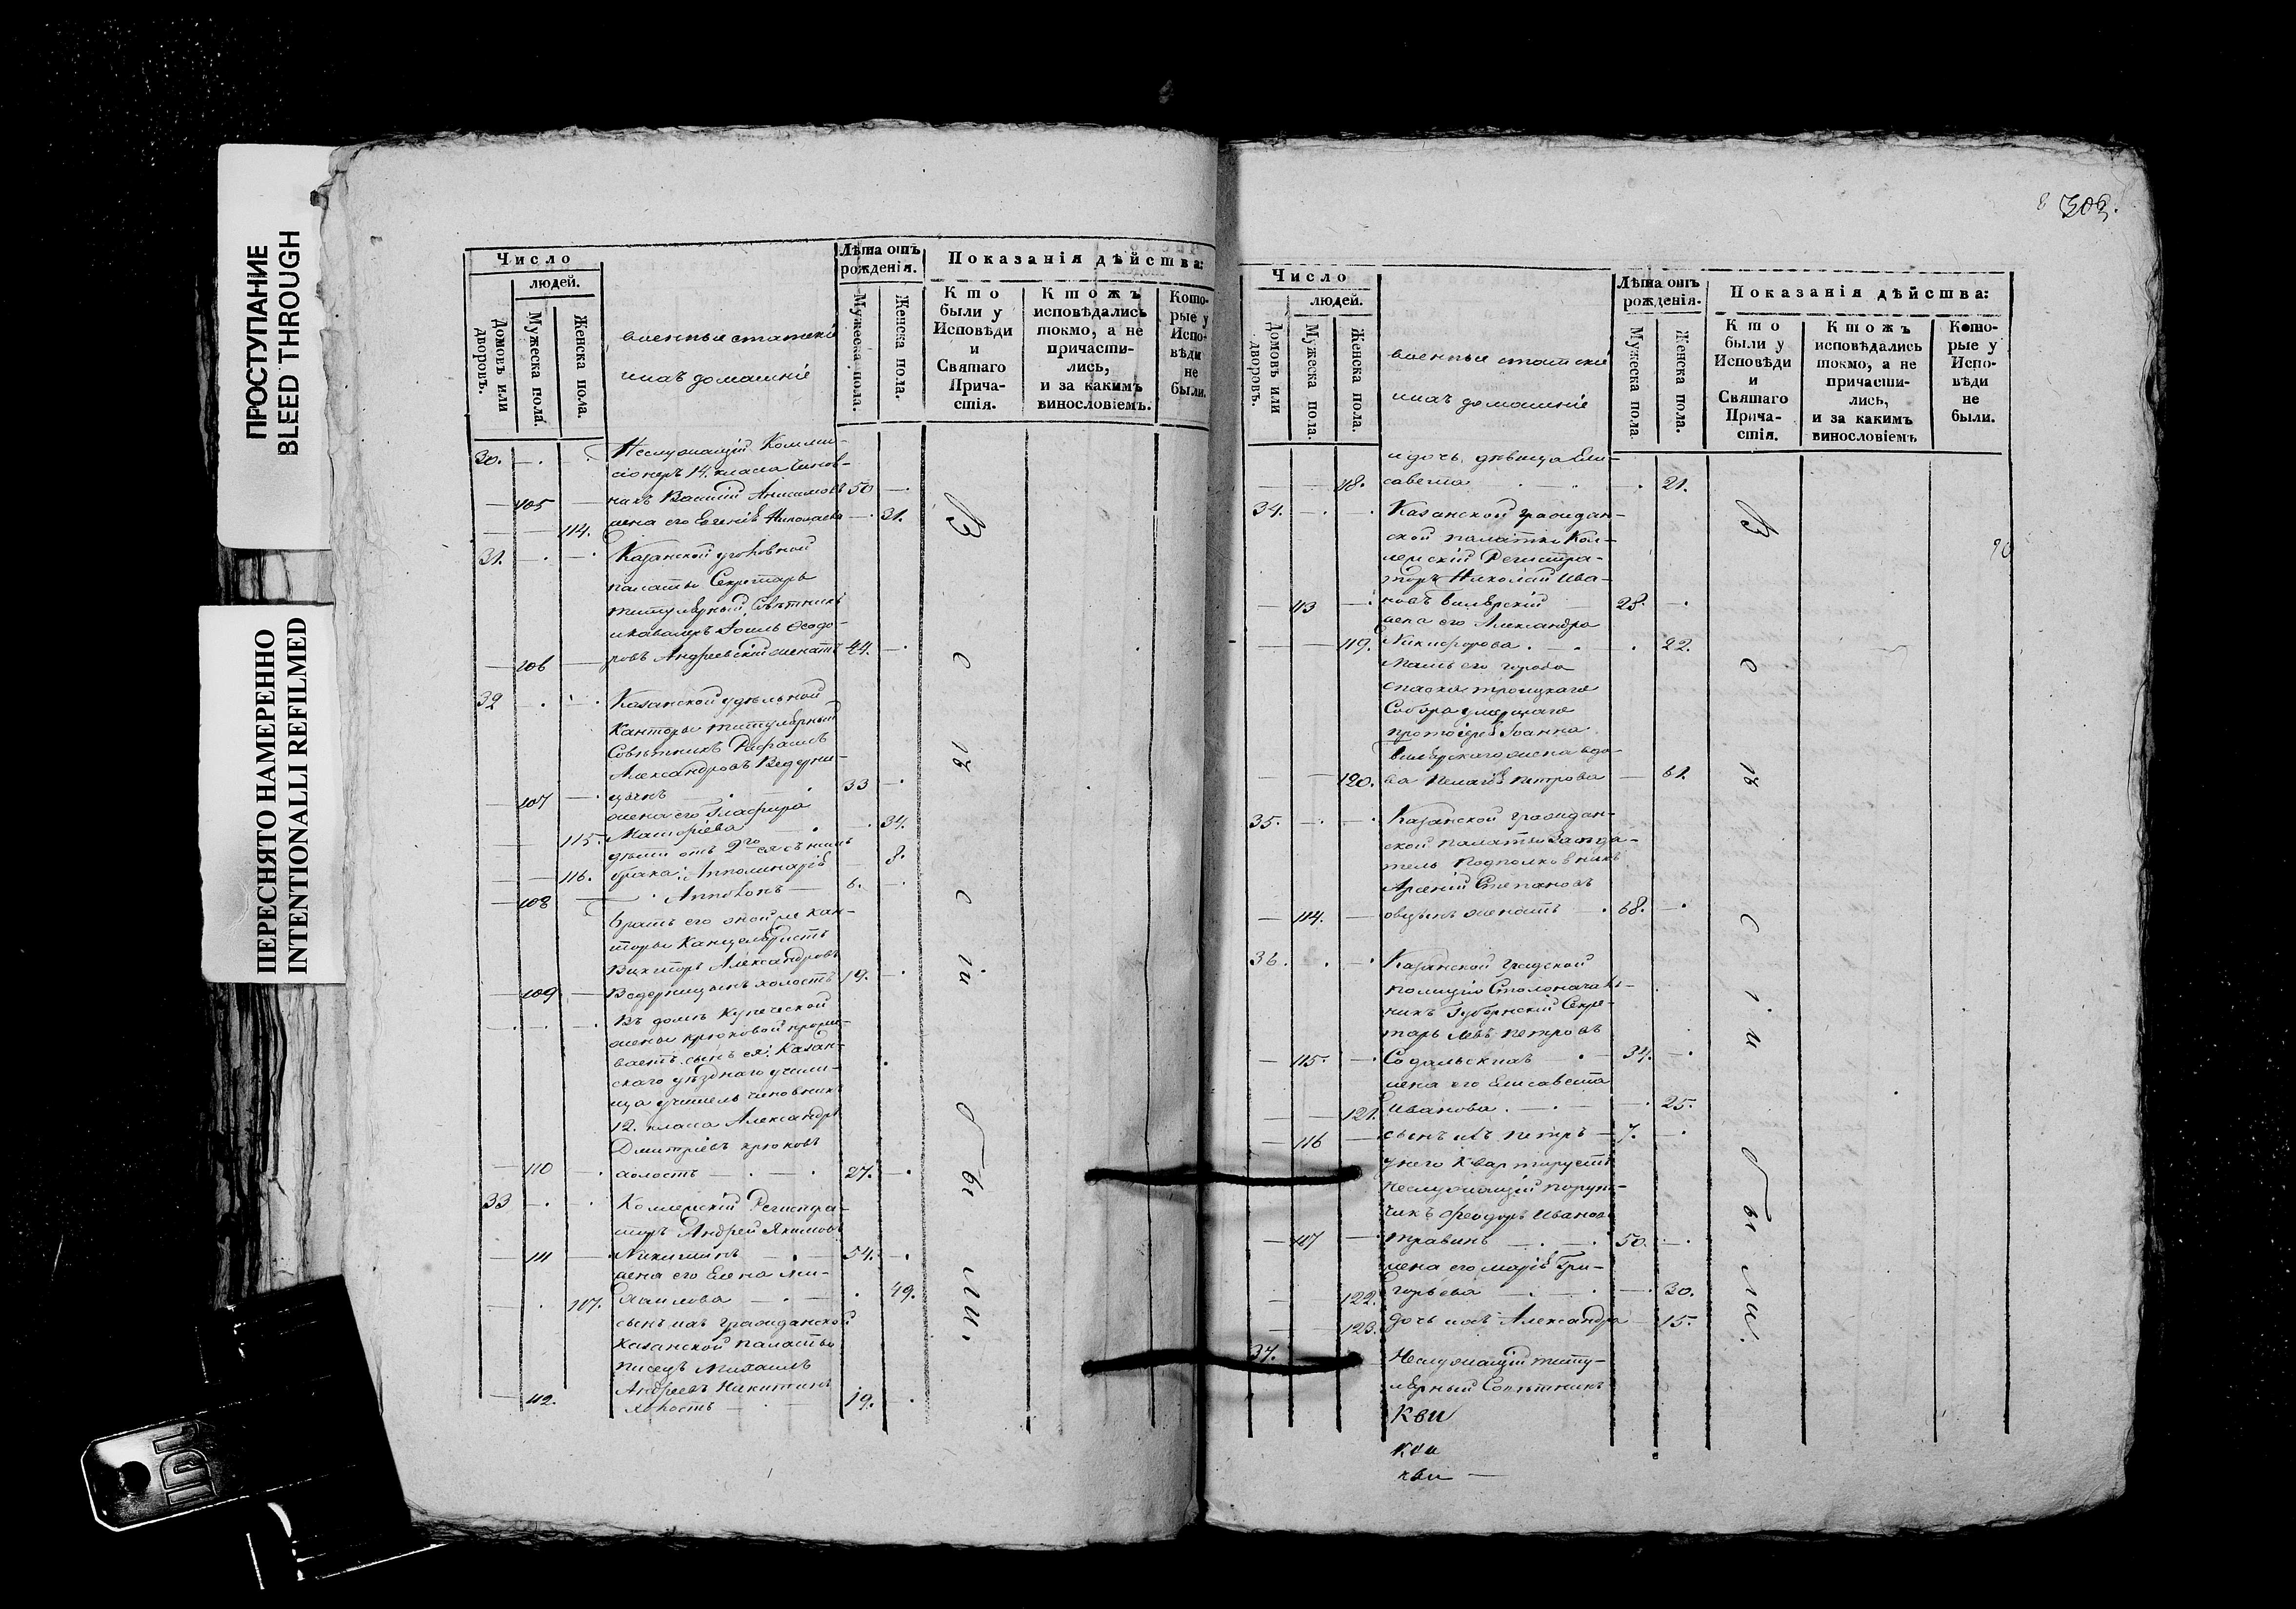 ПРОСТУПАНИЕ
BLEED THROUGH
ПЕРЕСНЯТО НАМЕРЕННО
INTENTIONALLI REFILMED
Число
людей.
Домовъ или дворовъ.
Мужеска пола.
Женска пола.
военные статскіе
ихъ домашніе
Лѣта отъ рожденія.
Мужеска пола.
Женска пола.
Показанія дѣйства:
Кто были у Исповѣди и Святаго Причастія.
Ктожъ исповѣдались токмо, а не причастились, и за какимъ винословіемъ.
Которые у Исповѣди не были.
30. Неслужащій Комми-
сіонеръ 14. класса Чинов-
105 никъ Василій Анисимовъ 50
114. жена его Евгенія Николаева 31.
31. Казанской уголовной
палаты Секретарь
титулярный Совѣтникъ
и кавалеръ Іоиль Феодо-
106 ровъ Андреевскій женатъ 44.
32 Казанской удѣльной
Конторы титулярный
Совѣтникъ Рафаилъ
Александровъ Ведерни-
107 цынъ 33
жена его Глафира
115. 34.
дѣти отъ 2го ея съ нимъ
116. брака: Апполинарія 8.
108 Апполонъ 6.
братъ его оной же кан-
торы Канцеляристъ
Викторъ Александровъ
109 Ведерницынъ холостъ 19.
Въ домѣ Купеческой
жены Крюковой прожи-
ваетъ сынъ ея: Казан-
скаго уѣзднаго учили-
ща учитель чиновникъ
12. класса Александръ
Дмитріевъ Крюковъ
110 холостъ 27.
33 Коллежскій Регистра-
торъ Андрей Якимовъ
111 Никитинъ 54.
жена его Елена Ми-
117. хаилова 49.
сынъ ихъ гражданской
Казанской палаты
писецъ Михаилъ
Андреевъ Никитинъ
112. холостъ 19.
В с ѣ с і и б ы л и.
303.
Число
людей.
Домовъ или дворовъ.
Мужеска пола.
Женска пола.
военные статскіе
ихъ домашніе
Лѣта отъ рожденія.
Мужеска пола
Женска пола.
Показанія дѣйства:
Кто были у Исповѣди и Святаго Причастія.
Ктожъ исповѣдались токмо, а не причастились, и за какимъ винословіемъ
Которые у Исповѣди не были.
и дочь дѣвица Ели-
118. савета 21.
34. Казанской граждан-
ской палаты Кол-
лежскій Регистра-
торъ Николай Ива-
113 новъ Билярскій 28.
жена его Александра
119. Никифорова 22.
Мать его города
Спасска троицкаго
Собора умершаго
протоіерея Іоанна
Билярскаго жена вдо-
120. ва Пелагія Петрова 61.
35. Казанской граждан-
ской палаты Засѣда-
тель Подполковникъ
Арсеній Степановъ
114. овцынъ женатъ 68.
36. Казанской градской
полиціи Столоначаль-
никъ Губернскій Секре-
тарь Левъ Петровъ
115. 34.
жена его Елисавета
121. Иванова 25.
116 сынъ ихъ Петръ 7.
у него Квартируетъ
неслужащій поруt-
чикъ Феодоръ Ивановъ
117 травинъ 50.
жена его Марія Гри-
122. горьева 30.
123. дочь ихъ Александра 15.
37. Неслужащій титу-
лярный Совѣтникъ
В с ѣ с і и б ы л и.
90